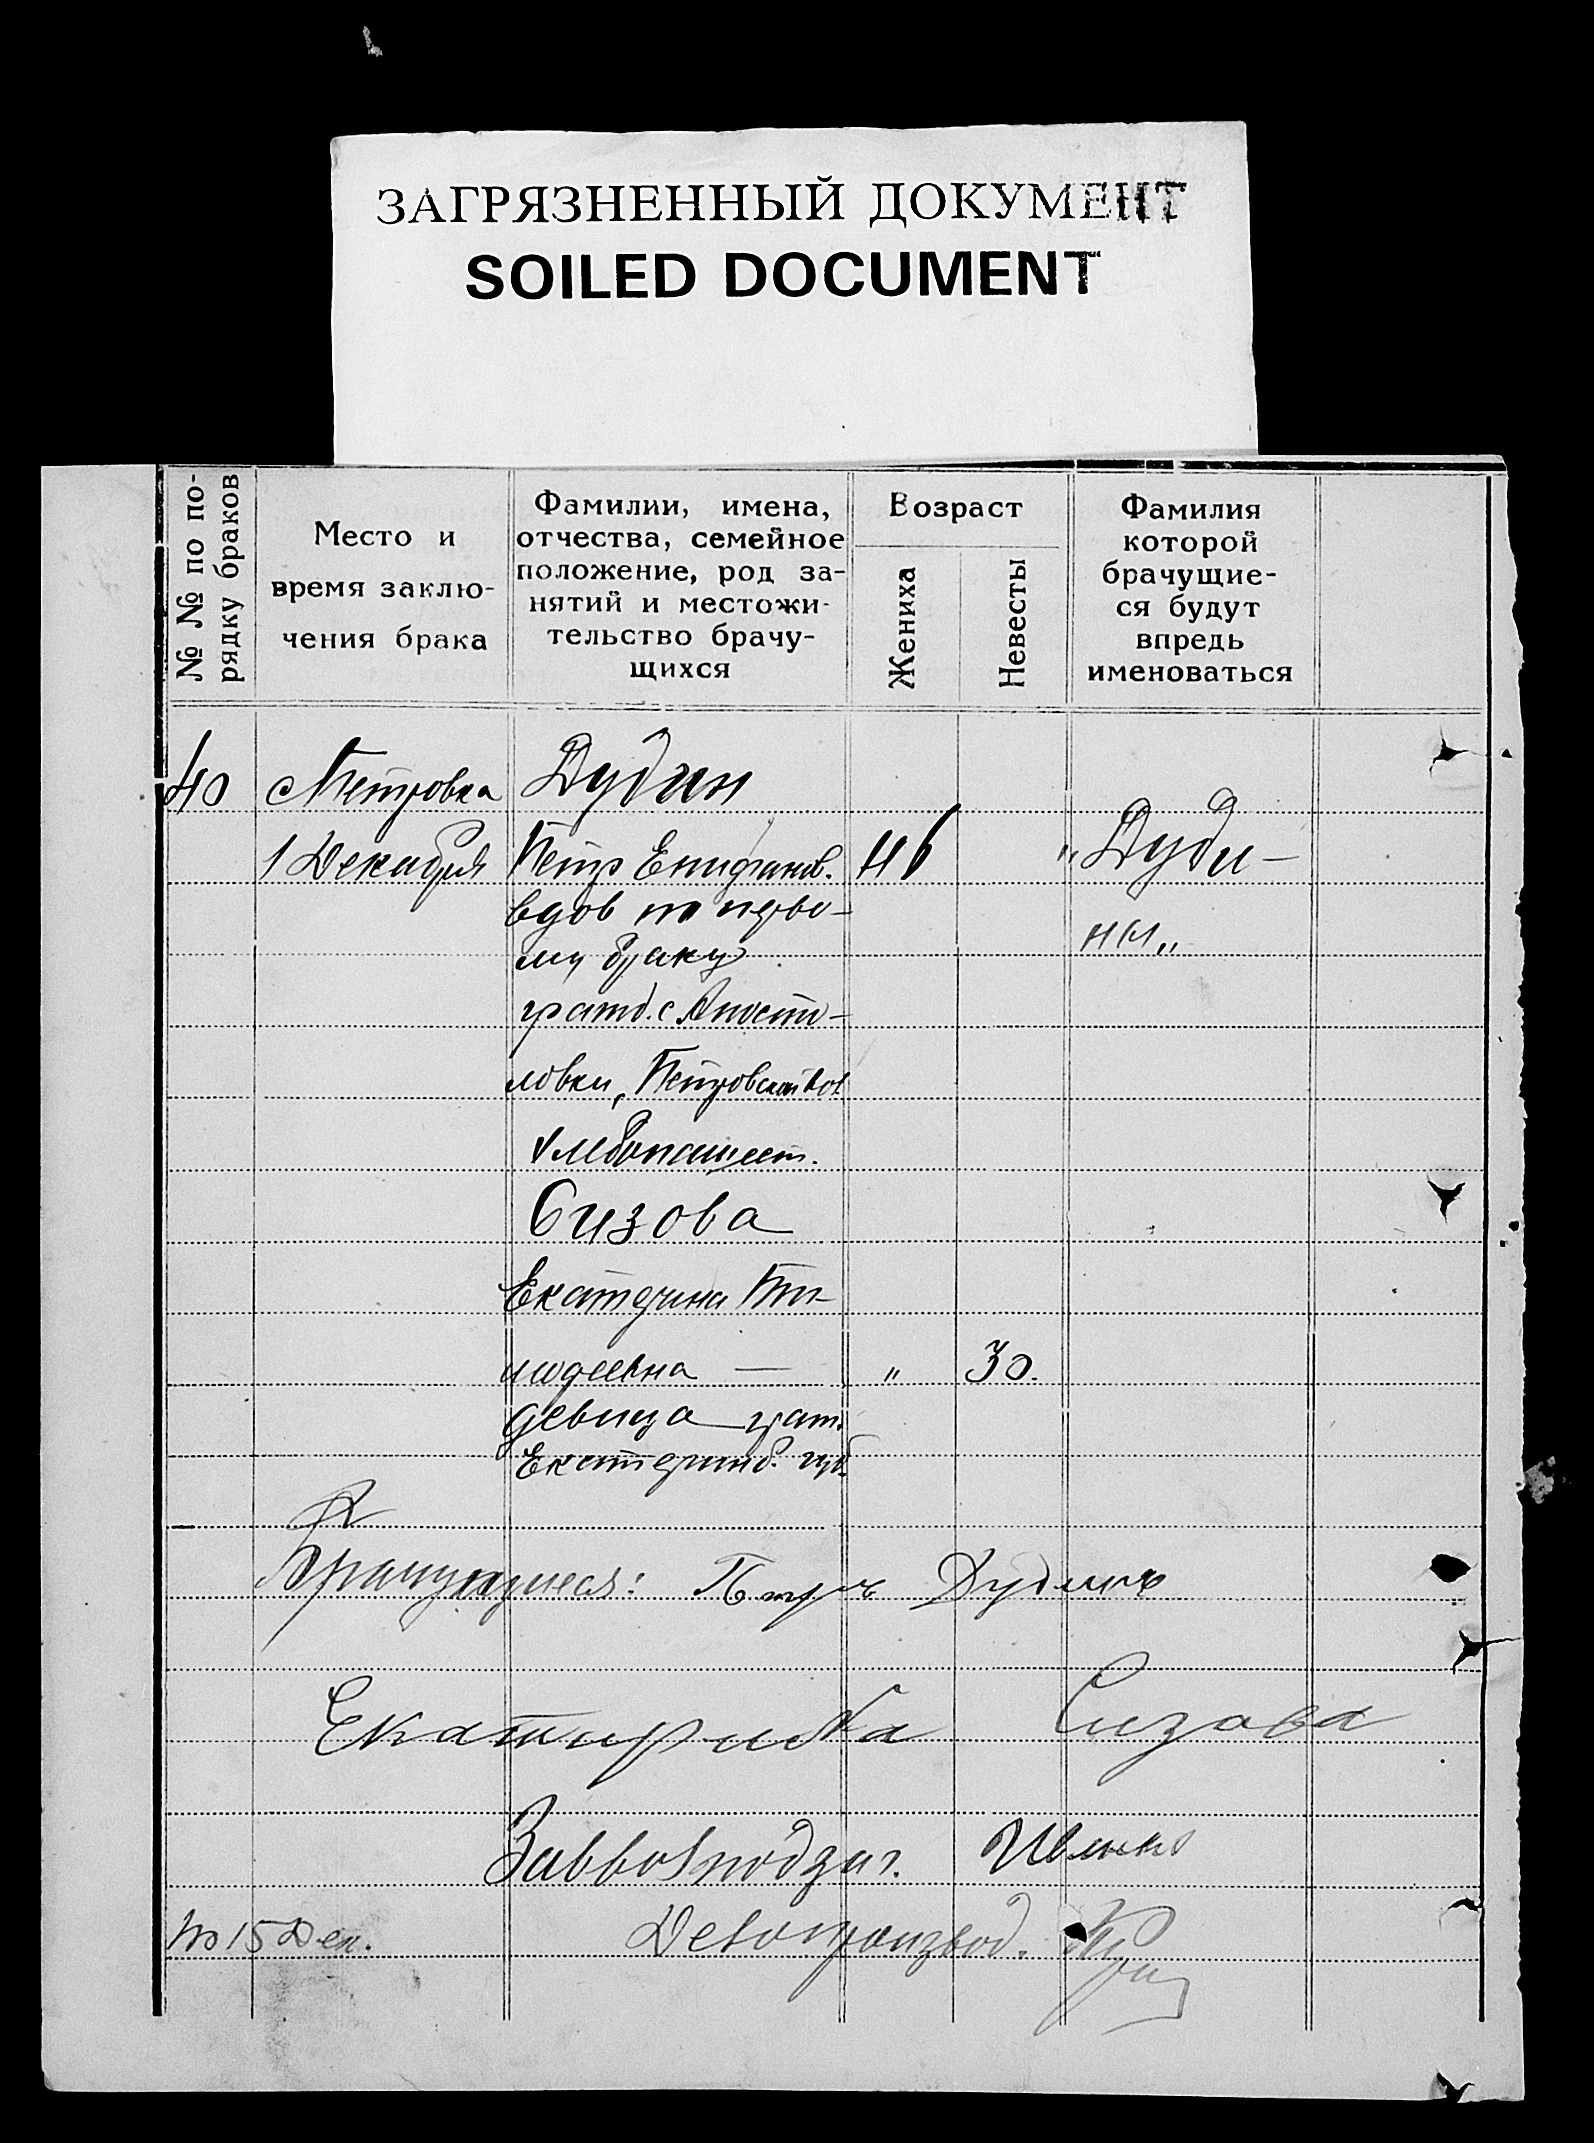 ЗАГРЯЗНЕННЫЙ ДОКУМЕНТ
SOILED DOCUMENT
№ № по по-
рядку браков
Место и
время заклю-
чения брака
Фамилии, имена,
отчества, семейное
положение, род за-
нятий и местожи-
тельство брачу-
щихся
Возраст
Жениха
Невесты
Фамилия
которой
брачущие-
ся будут
впредь
именоваться
40 с Петровка Дудин
1 Декабря Петр Епифанов. 46 „Дуди-
вдов по перво- ны„
му браку
гражд. с Апосто-
ловки, Петровской вол
Хлебопашест.
Сизова
Екатерина
девна — „ 30.
девица гражд.
Екатеринб. губ.
Брачующиеся: Петръ Дудинъ
Екатирина Сизова
Зав Подзаг.
По 15 Дек. Делопроизвод.